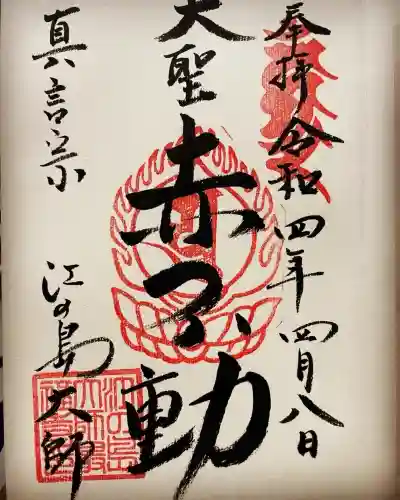 奉拝 令和四年四月八日
大聖
赤不動
真言宗
江の島大師